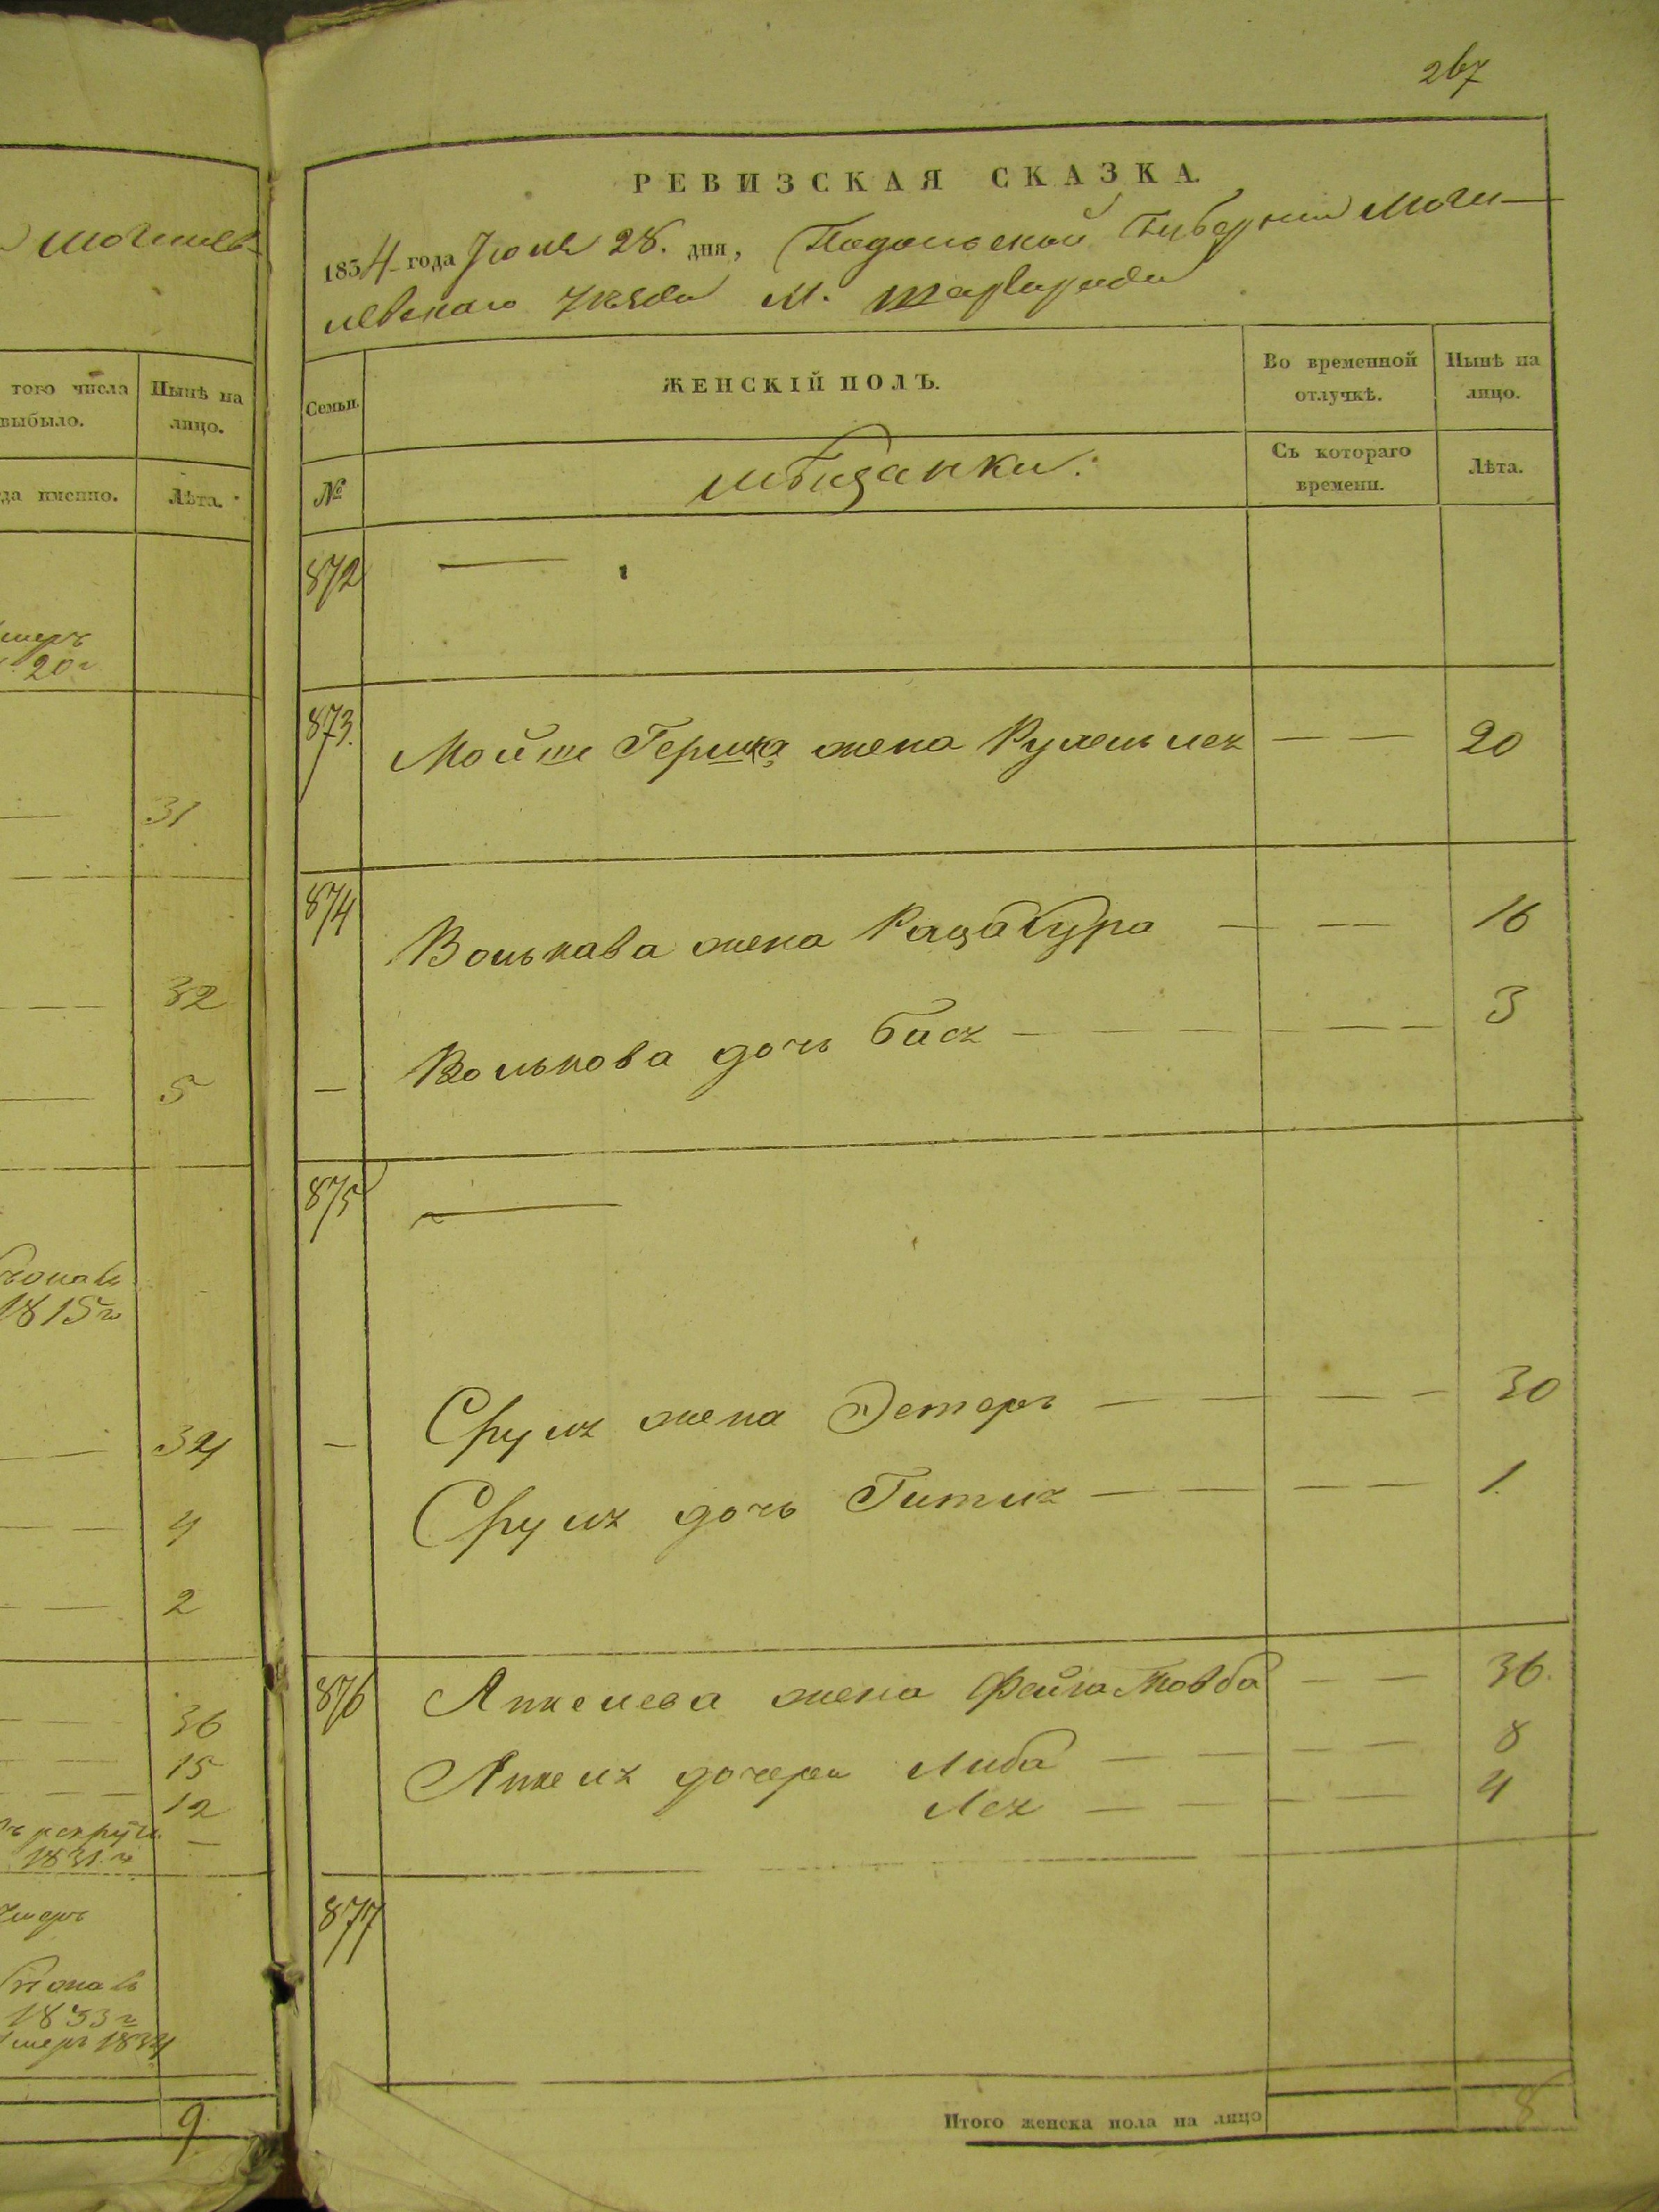 267
могилев
того числа
выбыло.
Нынѣ на
лицо.
да именно.
Лѣта.
умеръ
20г
31
32
5
1815го
34
4
2
36
15
12
1831.го
—
умеръ
1833г
умеръ 1834
9
РЕВИЗСКАЯ СКАЗКА.
1834 года Июня 28. дня, Подольской Губернии Моги-
левскаго уѣзда м. Шаргорода
Семьи.
ЖЕНСКІЙ ПОЛЪ.
Во временной
отлучкѣ.
Нынѣ на
лицо.
№
мѣщанки.
Съ котораго
времени.
Лѣта.
872 —
873. Мойше Гершка жена Рухель лея — — 20
874 Волькава жена — — 16
— Волькова дочь Бася — — — — — — 3
875 —
— Сруля жена Эстеръ — — — — 30
Сруля дочь Гитля — — — — 1
876 Янкелева жена Фейга Товба — — 36.
Янкеля дочери Либа — — — — 8
Лея — — — — 4
877
Итого женска пола на лицо 8